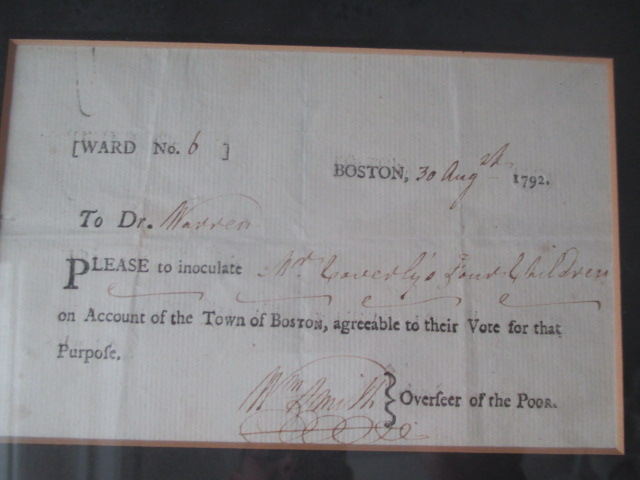 [WARD No. 6 ]
BOSTON, 30 Augst 1792.
To Dr. Warren
PLEASE to inoculate Mr Coverly's Four Children
on Account of the Town of BOSTON, agreeable to their Vote for that
Purpoſe.
Wm Smith } Overſeer of the POOR.